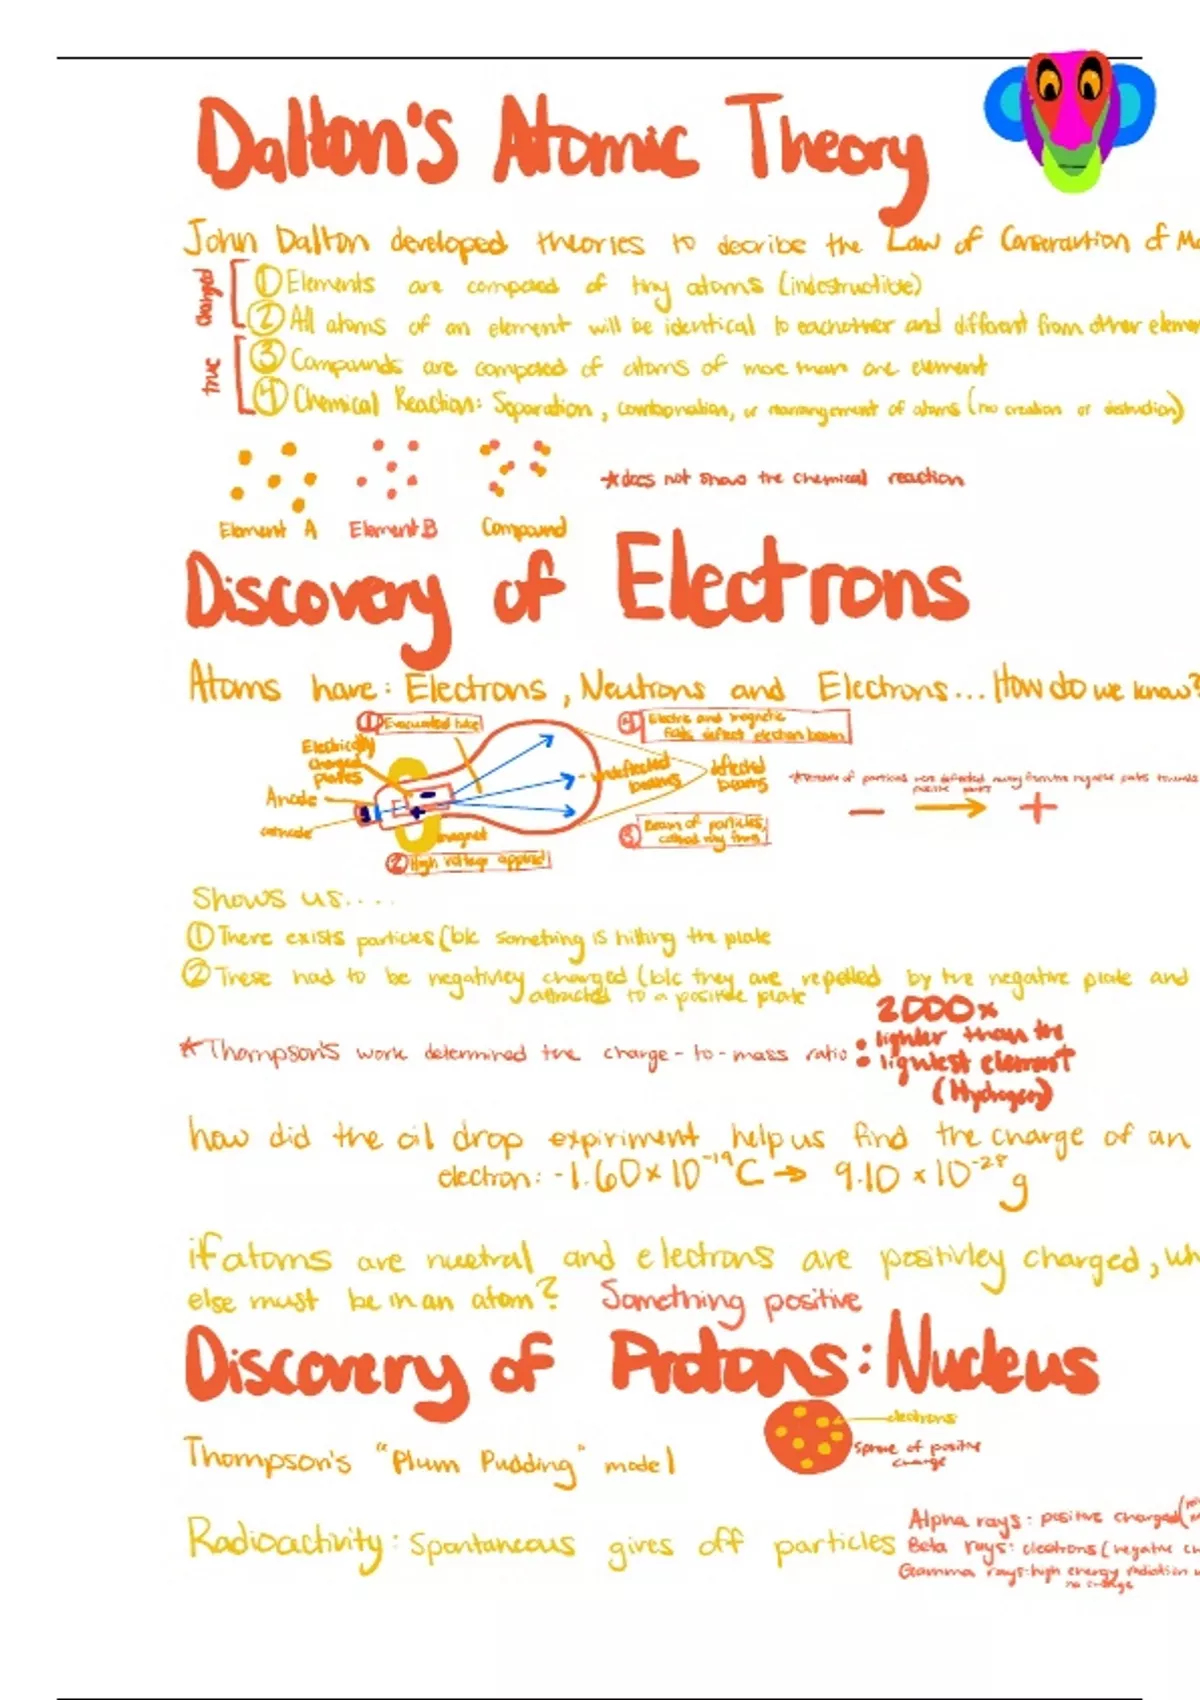 Dalton's Atomic Theory
John Dalton developed theories to decribe the Law of Conservation of Ma
changed
① Elements are composed of tiny atoms (indestructible)
② All atoms of an element will be identical to eachother and different from other elemen
true
③ Compounds are composed of atoms of more than one element
④ Chemical Reaction: Separation, combonation, or rearrangement of atoms (no creation or destruction)
*does not show the chemical reaction
Element A Element B Compound
Discovery of Electrons
Atoms have: Electrons, Neutrons and Electrons... How do we know?
① Evacuated tube
④ Electric and magnetic
fields deflect electron beam
Electrically
charged
plates
undeflected
beams
deflected
beams
Anode
cathode
- → +
magnet
③ Beam of particles,
② High voltage applied
Shows us....
① There exists particles (b/c something is hitting the plate
② These had to be negativley charged (b/c they are repelled by the negative plate and
attracted to a positive plate
*Thompson's work determined the charge-to-mass ratio
2000x
• lighter than the
• lightest element
(Hydrogen)
how did the oil drop expiriment help us find the charge of an
electron: -1.60 x 10⁻¹⁹ C → 9.10 x 10⁻²⁸ g
if atoms are nuetral and electrons are positivley charged, wh
else must be in an atom? Something positive
Discovery of Protons: Nucleus
electrons
sphere of positive
charge
Thompson's "Plum Pudding" model
Radioactivity: Spontaneous gives off particles
Alpha rays: positive charged (
Beta rays: electrons (negative ch
Gamma rays: high energy radiation w
no charge